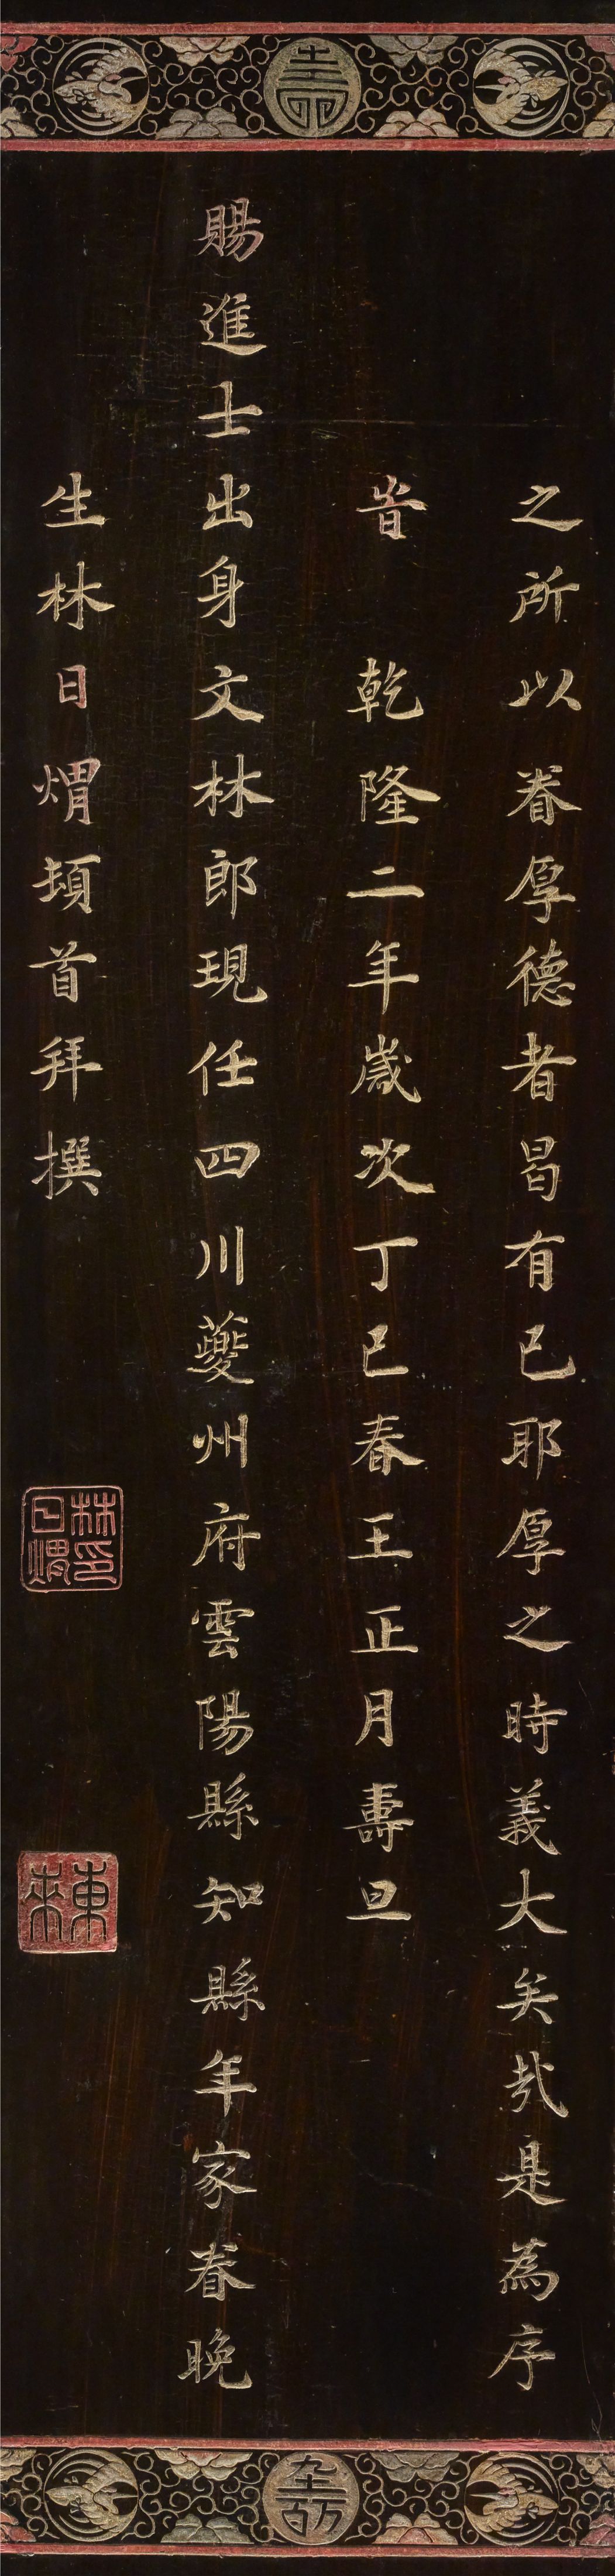 之所以眷厚德者曷有已耶厚之時義大矣哉是為序
旹 乾隆二年歲次丁巳春王正月壽旦
賜進士出身文林郎現任四川夔州府雲陽縣知縣年家眷晚
生林日熌頓首拜撰
林日熌印
東來